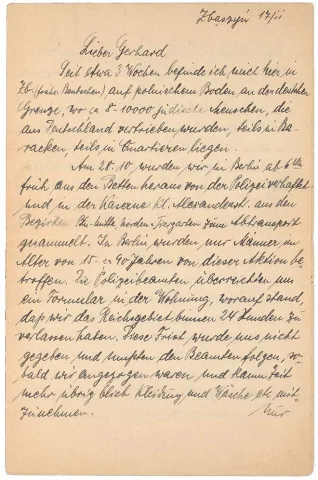 Zbaszyń 17/11
Lieber Gerhard
Seit etwa 3 Wochen befinde ich mich hier in
Zb. (früher Bentschen) auf polnischem Boden an der deutschen
Grenze, wo ca 8-10000 jüdische Menschen, die
aus Deutschland vertrieben wurden, teils in Ba-
racken, teils in Quartieren liegen.
Am 28.10 wurden wir in Berlin ab 6 Uhr
früh aus den Betten heraus von der Polizei verhaftet
und in der Kaserne kl. Alexanderst. aus den
Bezirken Bln-mitte, norden u Tiergarten zum Abtransport
gesammelt. In Berlin wurden nur Männer im
Alter von 15 - ca 90 Jahren von dieser Aktion be-
troffen. Die Polizeibeamten überreichten uns
ein Formular in der Wohnung, worauf stand,
daß wir das Reichsgebiet binnen 24 Stunden zu
verlassen haben. Diese Frist wurde uns nicht
gegeben und mußten den Beamten folgen, so-
bald wir angezogen waren und kaum Zeit
mehr übrig blieb Kleidung und Wäsche etc mit-
zunehmen.
Nur